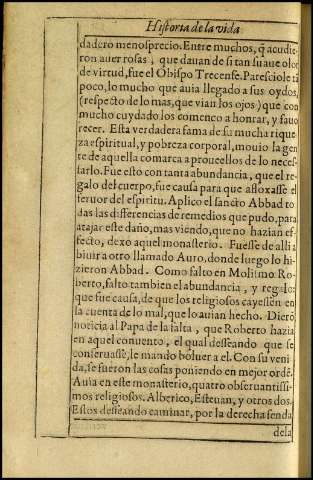 Historia de la vida
dadero menosprecio. Entre muchos, q̃ acudie-
ron a ver rosas, que dauan de si tan suaue olor
de virtud, fue el Obispo Trecense. Paresciole tã
poco, lo mucho que auia llegado a sus oydos,
(respecto de lo mas, que vian los ojos) que con
mucho cuydado los comenco a honrar, y fauo
recer. Esta verdadera fama de su mucha rique-
za espiritual, y pobreza corporal, mouio la gen
te de aquella comarca a proueellos de lo neces-
sario. Fue esto con tanta abundancia, que el re-
galo del cuerpo, fue causa para que afloxasse el
feruor del espiritu. Aplico el sancto Abbad to
das las differencias de remedios que pudo, para
atajar este daño, mas viendo, que no hazian ef-
fecto, dexo aquel monasterio. Fuesse de alli a
biuir a otro llamado Auro, donde luego lo hi-
zieron Abbad. Como falto en Molismo Ro-
berto, falto tambien el abundancia, y regalo:
que fue causa, de que los religiosos cayessen en
la cuenta de lo mal, que lo auian hecho. Dierõ
noticia al Papa de la falta, que Roberto hazia
en aquel conuento, el qual desseando que se
conseruasse, le mando boluer a el. Con su veni
da, se fueron las cosas poniendo en mejor ordẽ.
Auia en este monasterio, quatro obseruantissi-
mos religiosos. Alberico, Esteuan, y otros dos.
Estos desseando caminar, por la derecha senda
de la